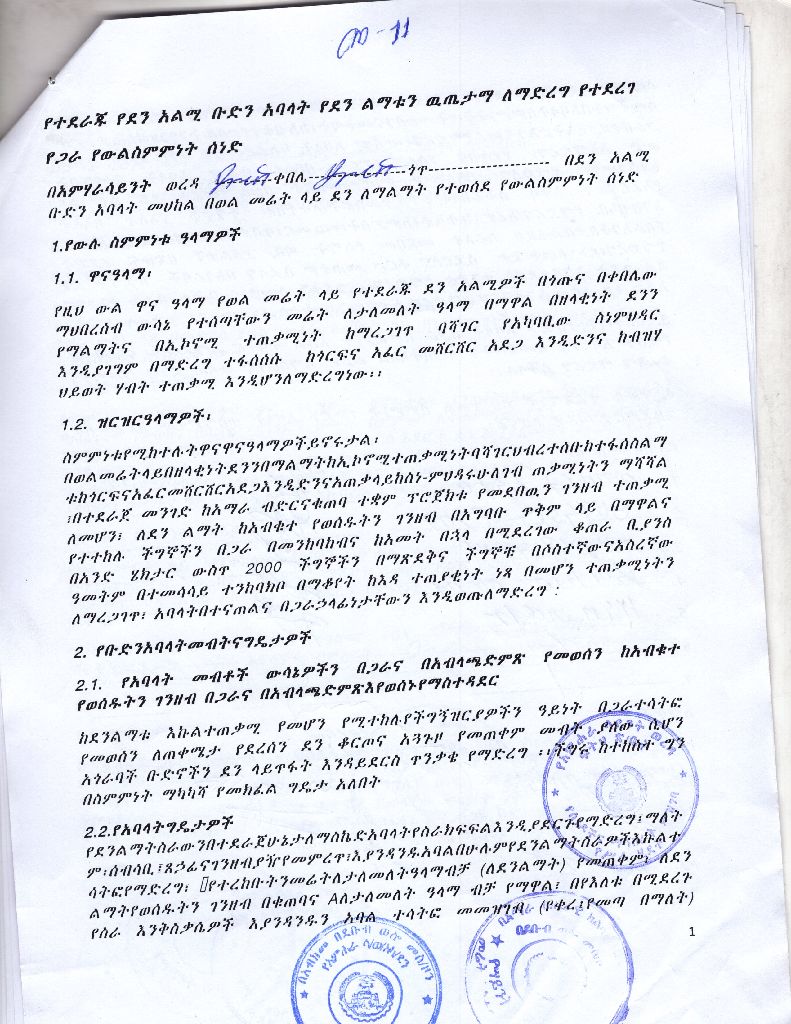 የተደራጁ የደን አልሚ ቡድን አባላት የደን ልማቱን ዉጤታማ ለማድረግ የተደረገ
የጋራ የውልስምምነት ሰነድ
በአምሃራሳይንት ወረዳ ቀበሌ ጎጥ በደን አልሚ
ቡድን አባላት መሀከል በወል መሬት ላይ ደን ለማልማት የተወሰደ የውልስምምነት ሰነድ
1.የውሉ ስምምነቱ ዓላማዎች
1.1. ዋናዓላማ፡
የዚህ ውል ዋና ዓላማ የወል መሬት ላይ የተደራጁ ደን አልሚዎች በጎጡና በቀበሌው
ማህበረሰብ ውሳኔ የተሰጣቸውን መሬት ለታለመለት ዓላማ በማዋል በዘላቂነት ደንን
የማልማትና በኢኮኖሚ ተጠቃሚነት ከማረጋገጥ ባሻገር የአካባቢው ስነምህዳር
እንዲያገግም በማድረግ ተፋሰሱ ከጎርፍና አፈር መሸርሸር አደጋ እንዲድንና ከብዝሃ
ህይወት ሃብት ተጠቃሚ እንዲሆንለማድረግነው፡፡
1.2. ዝርዝርዓላማዎች፡
ስምምነቱየሚከተሉትዋናዋናዓላማዎችይኖሩታል፡
በወልመሬትላይበዘላቂነትደንንበማልማትከኢኮኖሚተጠቃሚነትባሻገርህብረተሰቡከተፋሰስልማ
ቱከጎርፍናአፈርመሸርሸርአደጋእንዲድንናአጠቃላይከስነ-ምህዳሩሁለገብ ጠቃሚነትን ማሻሻል
፣በተደራጀ መንገድ ከአማራ ብድርናቁጠባ ተቋም ፕሮጀክቱ የመደበዉን ገንዘብ ተጠቃሚ
ለመሆን፣ ለደን ልማት ከአብቁተ የወሰዱትን ገንዘብ በአግባቡ ጥቅም ላይ በማዋልና
የተተከሉ ችግኞችን በጋራ በመንከባከብና ከአመት በኋላ በሚደረገው ቆጠራ ቢያንስ
በአንድ ሄክታር ውስጥ 2000 ችግኞችን በማጽደቅና ችግኞቹ በሶስተኛውናአስረኛው
ዓመትም በተመሳሳይ ተንከባክቦ በማቆየት ከእዳ ተጠያቂነት ነጻ በመሆን ተጠቃሚነትን
ለማረጋገጥ፣ አባላትበተናጠልና በጋራኃላፊነታቸውን እንዲወጡለማድረግ ፡
2. የቡድንአባላትመብትናግዴታዎች
2.1. የአባላት መብቶች ውሳኔዎችን በጋራና በአብላጫድምጽ የመወሰን ከአብቁተ
የወሰዱትን ገንዘብ በጋራና በአብላጫድምጽእየወሰኑየማስተዳደር
ከደንልማቱ እኩልተጠቃሚ የመሆን የሚተከሉየችግኝዝርያዎችን ዓይነት በጋራተሳትፎ
የመወሰን ለጠቀሜታ የደረሰን ደን ቆርጦና አጓጉዞ የመጠቀም መብት ያለው ሲሆን
አጎራባች ቡድኖችን ደን ላይጥፋት እንዳይደርስ ጥንቃቄ የማድረግ ፡፡ችግሩ ከተከሰተ ግን
በስምምነት ማካካሻ የመክፈል ግዴታ አለበት
2.2.የአባላትግዴታዎች
የደንልማትስራውንበተደራጀሁኔታለማስኬድአባላትየስራክፍፍልእንዲያደርጉየማድረግ፣ማለት
ም፡ሰብሳቢ፣ጸኃፊናገንዘብያዥየመምረጥ፣እያንዳንዱአባልበሁሉምየደንልማትስራዎችእኩልተ
ሳትፎየማድረግ፣ የተረከቡትንመሬትለታለመለትዓላማብቻ (ለደንልማት) የመጠቀም፣ ለደን
ልማትየወሰዱትን ገንዘብ በቁጠባና Aለታለመለት ዓላማ ብቻ የማዋል፣ በየእለቱ በሚደረጉ
የስራ እንቅስቃሴዎች እያንዳንዱን አባል ተሳትፎ መመዝገብ (የቀረ፤የመጣ በማለት)
1